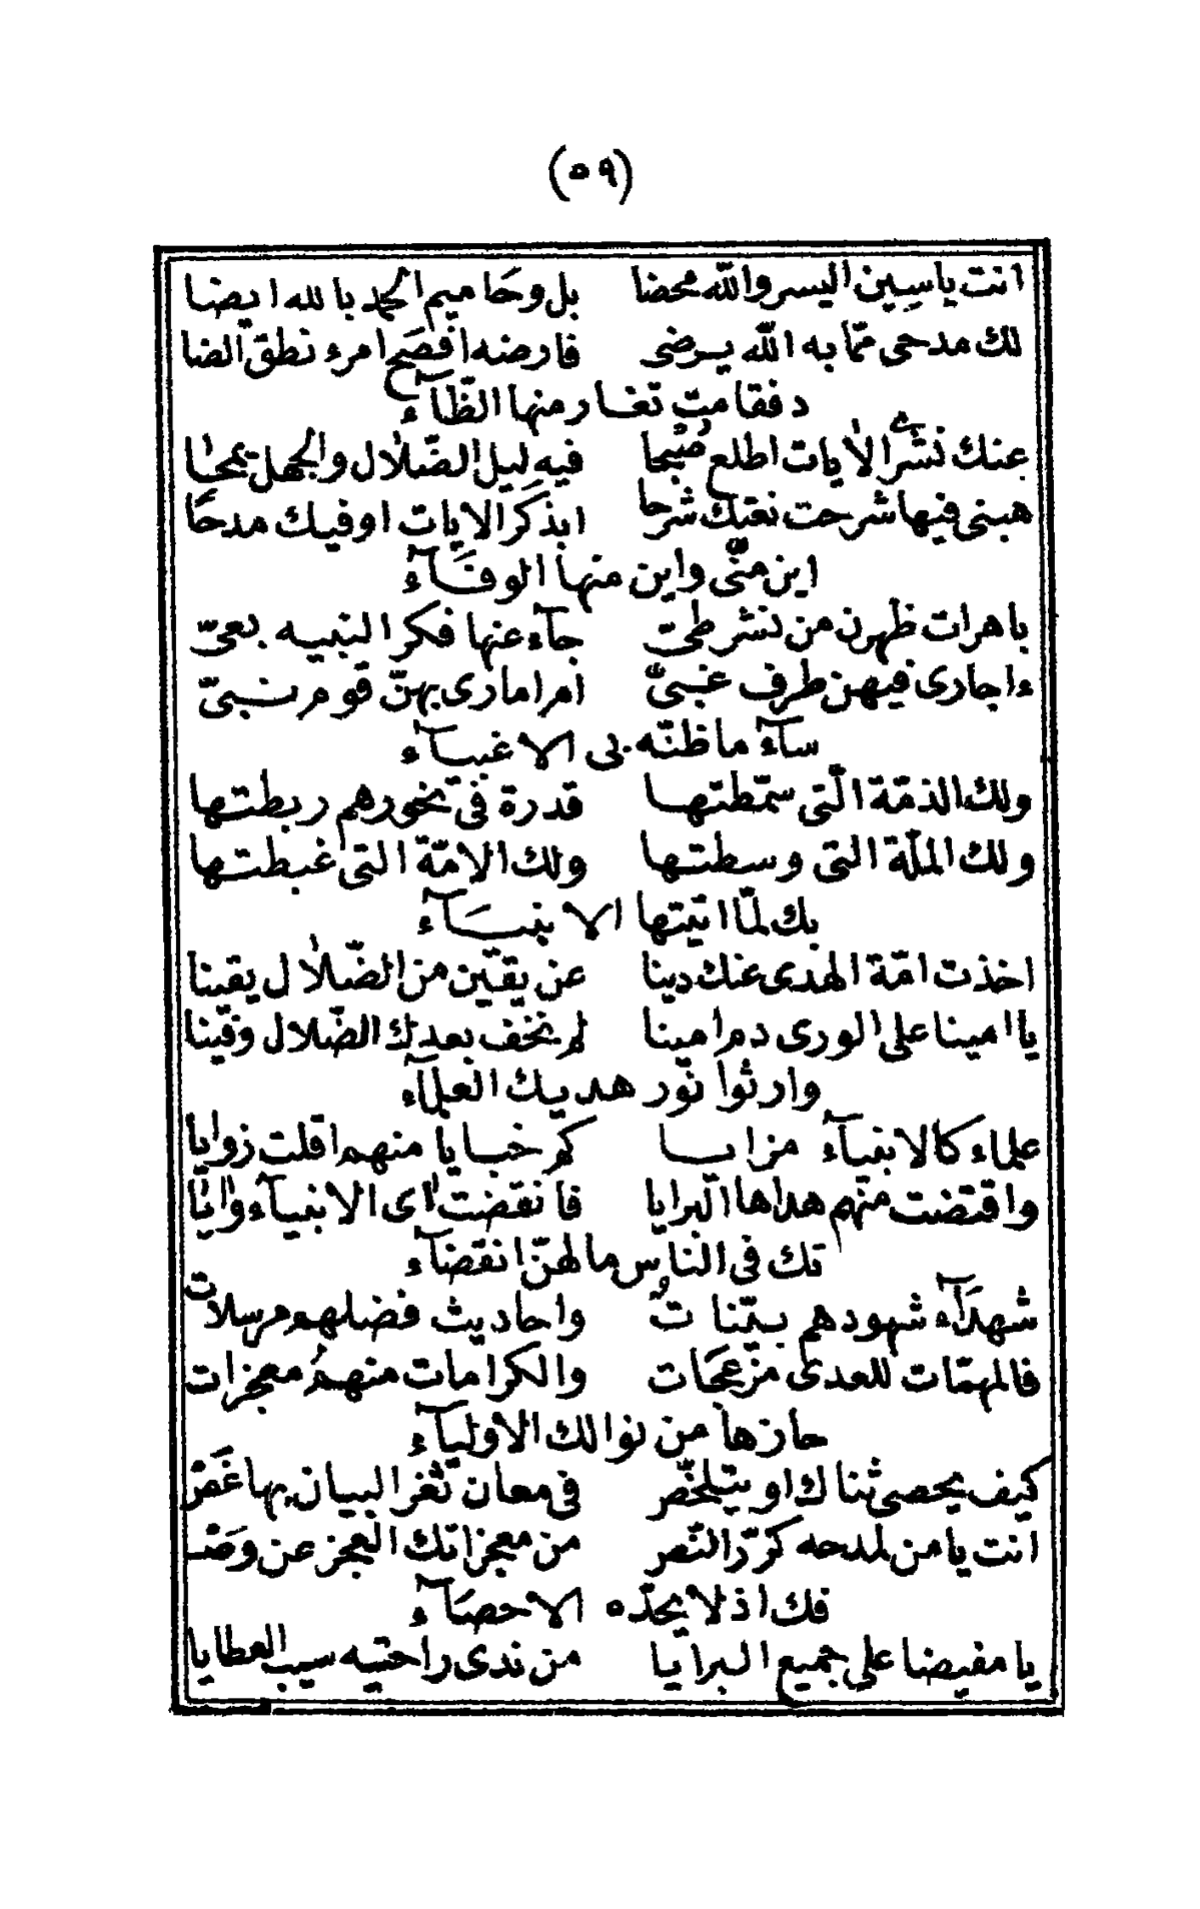 (٥٩)
انت ياسين اليسر والله محضا بل وحاميم الحمد بالله ايضا
لك مدحى ممّا به الله يرضى فارضه افصح امرء نطق الضا
د فقامت تغار منها الظّآء
عنك نشر الايات اطلع صبحا فيه ليل الضّلال والجهل يمحا
هبنى فيها شرحت نعتك شرحا ابذكر الايات اوفيك مدحا
اين منّى واين منها الوفآء
باهرات ظهرن من نشر طىّ جآء عنها فكر النبيه بعىّ
ءاجارى فيهن طرف غبىّ ام اماری بهنّ قوم نبىّ
سآء ما ظنّه بى الاغبيآء
ولك الذمّة الّتى سمّطتها قدرة فى نحورهم ربطتها
ولك الملّة التى وسطتها ولك الامّة التى غبطتها
بك لمّا اتيتها الانبيآء
اخذت امّة الهدى عنك دينا عن يقين من الضّلال يقينا
يا امينا على الورى دم امينا لم نخف بعدك الضّلال وفينا
وارثوا نور هديك العلمآء
علماء كالانبيآء مزايا كم خبايا منهم اقلت زوايا
واقتضت منهم هداها البرايا فانقضت اى الانبيآء وايا
تك فى الناس ما لهنّ انقضآء
شهدآء شهودهم بيّنات واحاديث فضلهم مرسلات
فالمهمّات للعدى مزعجات والكرامات منهم معجزات
حازها من نوالك الاوليآء
كيف يحصى ثناك او يتلخّص فى معان ثغر البيان بها غص
انت يا من لمدحه كرّر النّص من معجزاتك العجز عن وص
فك اذ لا يحدّه الاحصآء
يا مفيضا على جميع البرايا من ندى راحتيه سيب العطايا